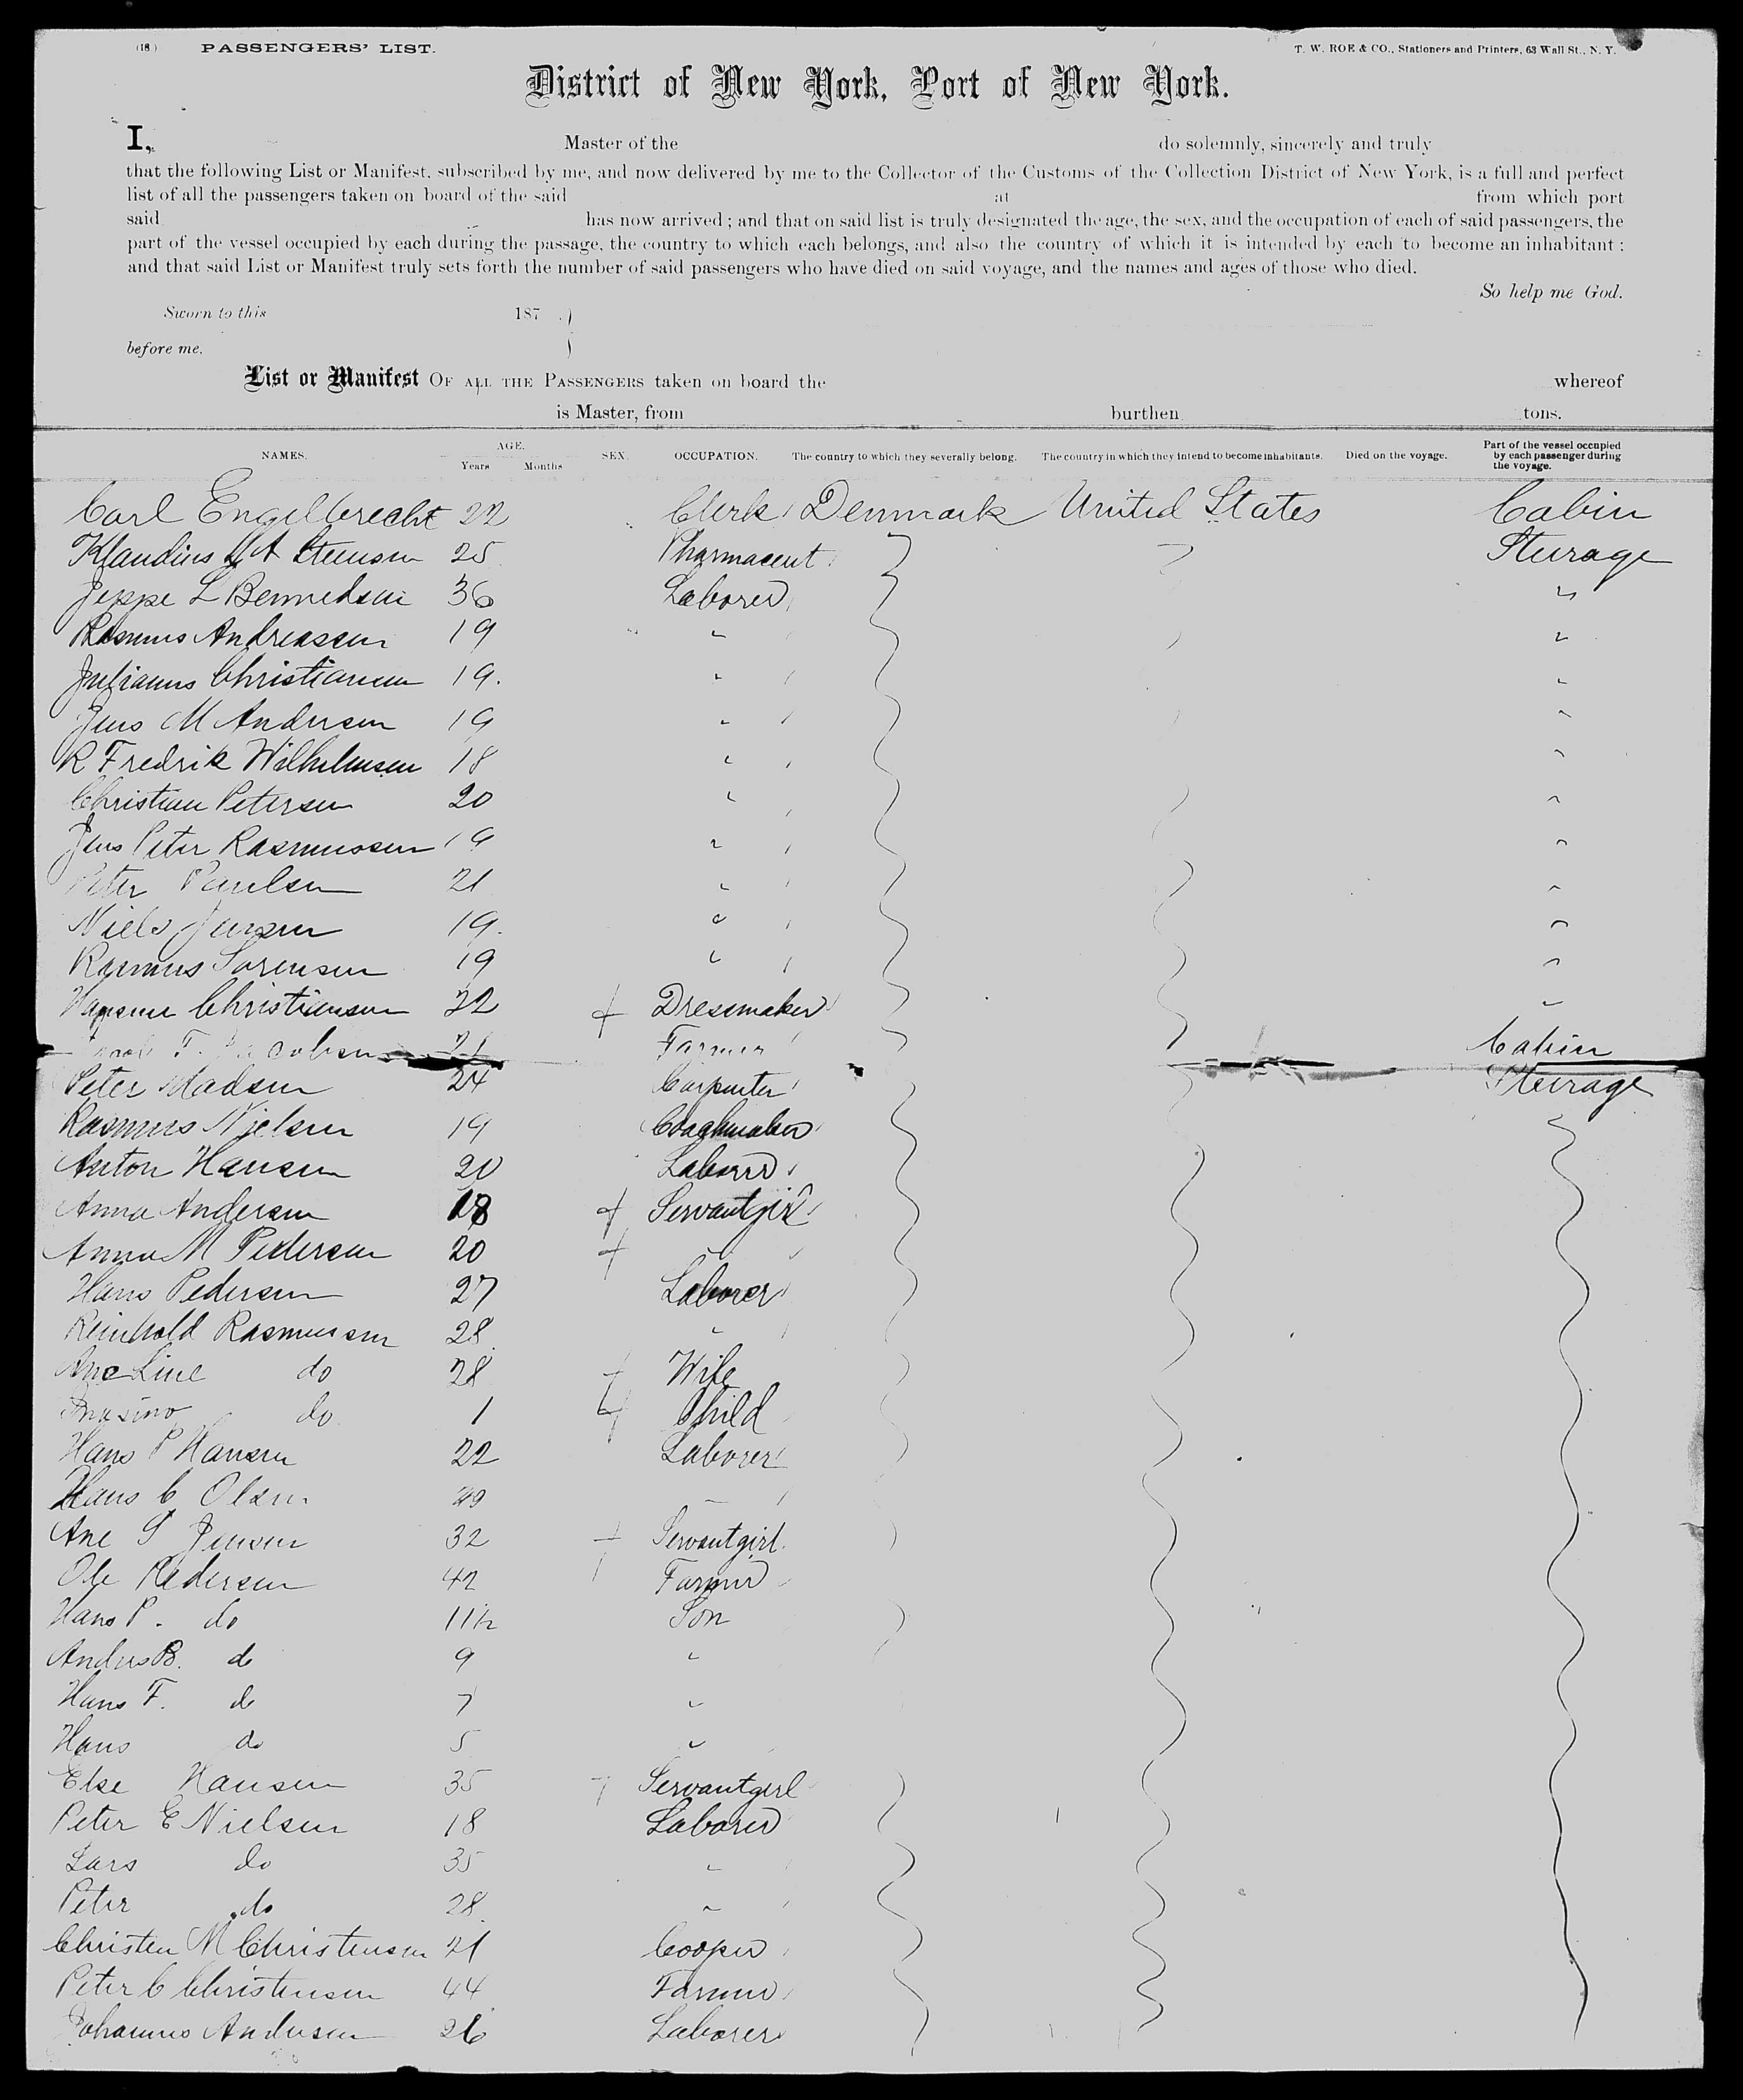 (18.) PASSENGERS' LIST. T. W. ROE & CO., Stationers and Printers, 63 Wall St., N. Y.
District of New York, Port of New York.
I, Master of the do solemnly, sincerely and truly
that the following List or Manifest, subscribed by me, and now delivered by me to the Collector of the Customs of the Collection District of New York, is a full and perfect
list of all the passengers taken on board of the said at from which port
said has now arrived; and that on said list is truly designated the age, the sex, and the occupation of each of said passengers, the
part of the vessel occupied by each during the passage, the country to which each belongs, and also the country of which it is intended by each to become an inhabitant;
and that said List or Manifest truly sets forth the number of said passengers who have died on said voyage, and the names and ages of those who died.
So help me God.
Sworn to this 187
before me.
List or Manifest OF ALL THE PASSENGERS taken on board the whereof
is Master, from burthen tons.
NAMES. AGE. Years Months SEX. OCCUPATION. The country to which they severally belong. The country in which they intend to become inhabitants. Died on the voyage. Part of the vessel occupied by each passenger during the voyage.
Carl Engelbrecht 22 Clerk Denmark United States Cabin
Klaudius A 25 Pharmaceut Steerage
Jeppe L Bennedsen 36 Laborer "
Rasmus Andreassen 19 " "
Julianus Christiansen 19. " "
Jens M Andersen 19 " "
R Fredrik Wilhelmsen 18 " "
Christian Petersen 20 " "
Jens Peter Rasmussen 19 " "
Peter Paulsen 21 " "
Niels Jensen 19. " "
Rasmus Sorensen 19 " "
Christiansen 22 + Dressmaker "
T. Jacobsen 21 Farmer Cabin
Peter Madsen 24 Carpenter Steerage
Rasmus Nielsen 19 Coachmaker
Anton Hansen 20 Laborer
Anna Andersen 18 + Servantgirl
Anna M Pedersen 20 + "
Hans Pedersen 27 Laborer
Reinhold Rasmussen 28. "
Ane Line do 28 + Wife
do 1 + Child
Hans P Hansen 22 Laborer
Hans C Olsen "
Ane S Jensen 32 + Servantgirl.
Ole Pedersen 42 Farmer
Hans P. do 11½ Son
Anders B. do 9 "
Hans F. do 7 "
Hans do 5 "
Else Hansen 35 + Servantgirl
Peter E Nielsen 18 Laborer
Lars do 35 "
Peter do 28. "
Christen M Christensen 21 Cooper
Peter C Christensen 44 Farmer
Johannes Andersen 26 Laborer